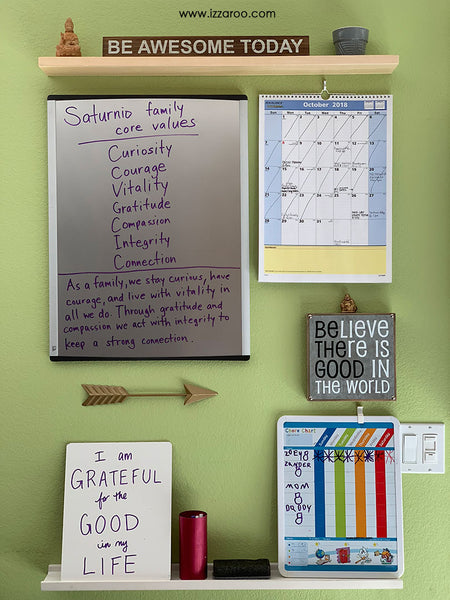 www.izzaroo.com
BE AWESOME TODAY
Saturnio family
core values
Curiosity
Courage
Vitality
Gratitude
Compassion
Integrity
Connection
As a family, we stay curious, have
courage, and live with vitality in
all we do. Through gratitude and
compassion we act with integrity to
keep a strong connection.
October 2018
BELIEVE
THERE IS
GOOD IN
THE WORLD
I am
GRATEFUL
for the
GOOD
in my
LIFE
Chore Chart
ZOEY
ZANDER
MOM
DADDY